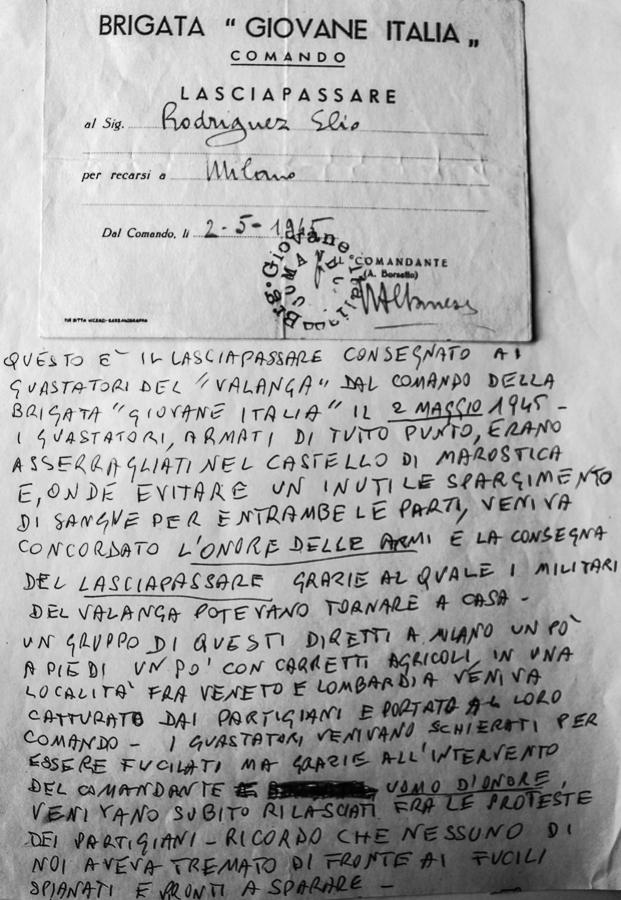 BRIGATA “ GIOVANE ITALIA „
COMANDO
LASCIAPASSARE
al Sig. Rodriguez Elio
per recarsi a Milano
Dal Comando, li 2-5-1945
Brg. Giovane Italia
COMANDO
IL COMANDANTE
(A. Borsatto)
QUESTO E' IL LASCIAPASSARE CONSEGNATO AI
GUASTATORI DEL "VALANGA" DAL COMANDO DELLA
BRIGATA "GIOVANE ITALIA" IL 2 MAGGIO 1945 -
I GUASTATORI, ARMATI DI TUTTO PUNTO, ERANO
ASSERRAGLIATI NEL CASTELLO DI MAROSTICA
E, ONDE EVITARE UN INUTILE SPARGIMENTO
DI SANGUE PER ENTRAMBE LE PARTI, VENIVA
CONCORDATO L'ONORE DELLE ARMI E LA CONSEGNA
DEL LASCIAPASSARE GRAZIE AL QUALE I MILITARI
DEL VALANGA POTEVANO TORNARE A CASA -
UN GRUPPO DI QUESTI DIRETTI A MILANO UN PO'
A PIEDI UN PO' CON CARRETTI AGRICOLI, IN UNA
LOCALITA' FRA VENETO E LOMBARDIA VENIVA
CATTURATO DAI PARTIGIANI E PORTATO AL LORO
COMANDO - I GUASTATORI VENIVANO SCHIERATI PER
ESSERE FUCILATI MA GRAZIE ALL'INTERVENTO
DEL COMANDANTE UOMO D'ONORE,
VENIVANO SUBITO RILASCIATI FRA LE PROTESTE
DEI PARTIGIANI - RICORDO CHE NESSUNO DI
NOI AVEVA TREMATO DI FRONTE AI FUCILI
SPIANATI E PRONTI A SPARARE -